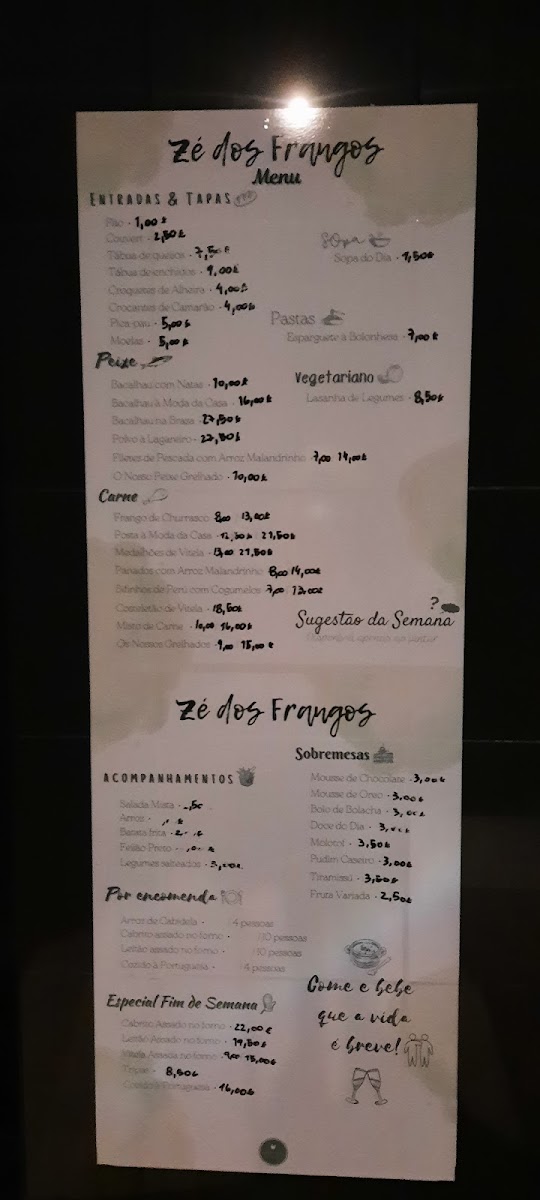 Zé dos Frangos
Menu
ENTRADAS & TAPAS
Pão - 1,00 €
Couvert - 2,50 €
Tábua de queijos - 7,50 €
Tábua de enchidos - 9,00€
Croquetes de Alheira - 4,00€
Crocantes de Camarão - 4,00€
Pica-pau - 5,00€
Moelas - 5,00€
Sopa
Sopa do Dia - 1,50€
Pastas
Esparguete à Bolonhesa - 7,00 €
Vegetariano
Lasanha de Legumes - 8,50€
Peixe
Bacalhau com Natas - 10,00€
Bacalhau à Moda da Casa - 16,00€
Bacalhau na Brasa - 27,50€
Polvo à Lagareiro - 27,50€
Filetes de Pescada com Arroz Malandrinho 7,00 14,00€
O Nosso Peixe Grelhado - 10,00€
Carne
Frango de Churrasco 8,00 13,00€
Posta à Moda da Casa - 12,50€ 21,50€
Medalhões de Vitela - 13,00 21,50€
Panados com Arroz Malandrinho 8,00 14,00€
Bifinhos de Perú com Cogumelos 7,00 12,00€
Costeletão de Vitela - 18,50€
Misto de Carne - 10,00 16,00€
Os Nossos Grelhados - 9,00 15,00 €
?
Sugestão da Semana
Zé dos Frangos
ACOMPANHAMENTOS
Salada Mista -
Arroz -
Batata frita -
Feijão Preto -
Legumes salteados - 3,00€
Sobremesas
Mousse de Chocolate - 3,00€
Mousse de Oreo - 3,00€
Bolo de Bolacha - 3,00€
Doce do Dia - 3,00€
Molotof - 3,50€
Pudim Caseiro - 3,00€
Tiramissú - 3,50€
Fruta Variada - 2,50€
Por encomenda
Arroz de Cabidela - /4 pessoas
Cabrito assado no forno - /10 pessoas
Leitão assado no forno - /10 pessoas
Cozido à Portuguesa - /4 pessoas
Especial Fim de Semana
Cabrito Assado no forno - 22,00€
Leitão Assado no forno - 19,50€
Vitela Assada no forno - 9,00 15,00€
Tripas - 8,50€
Cozido à Portuguesa - 16,00€
Come e bebe
que a vida
é breve!